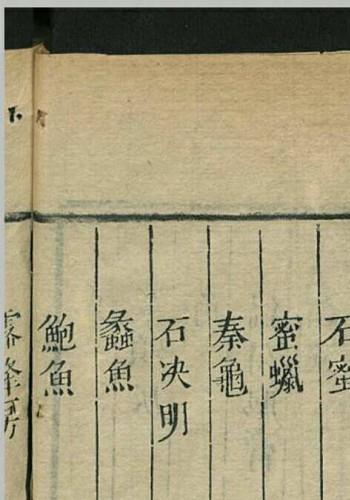 石蜜
蜜蠟
秦龜
石决明
蠡魚
鮑魚